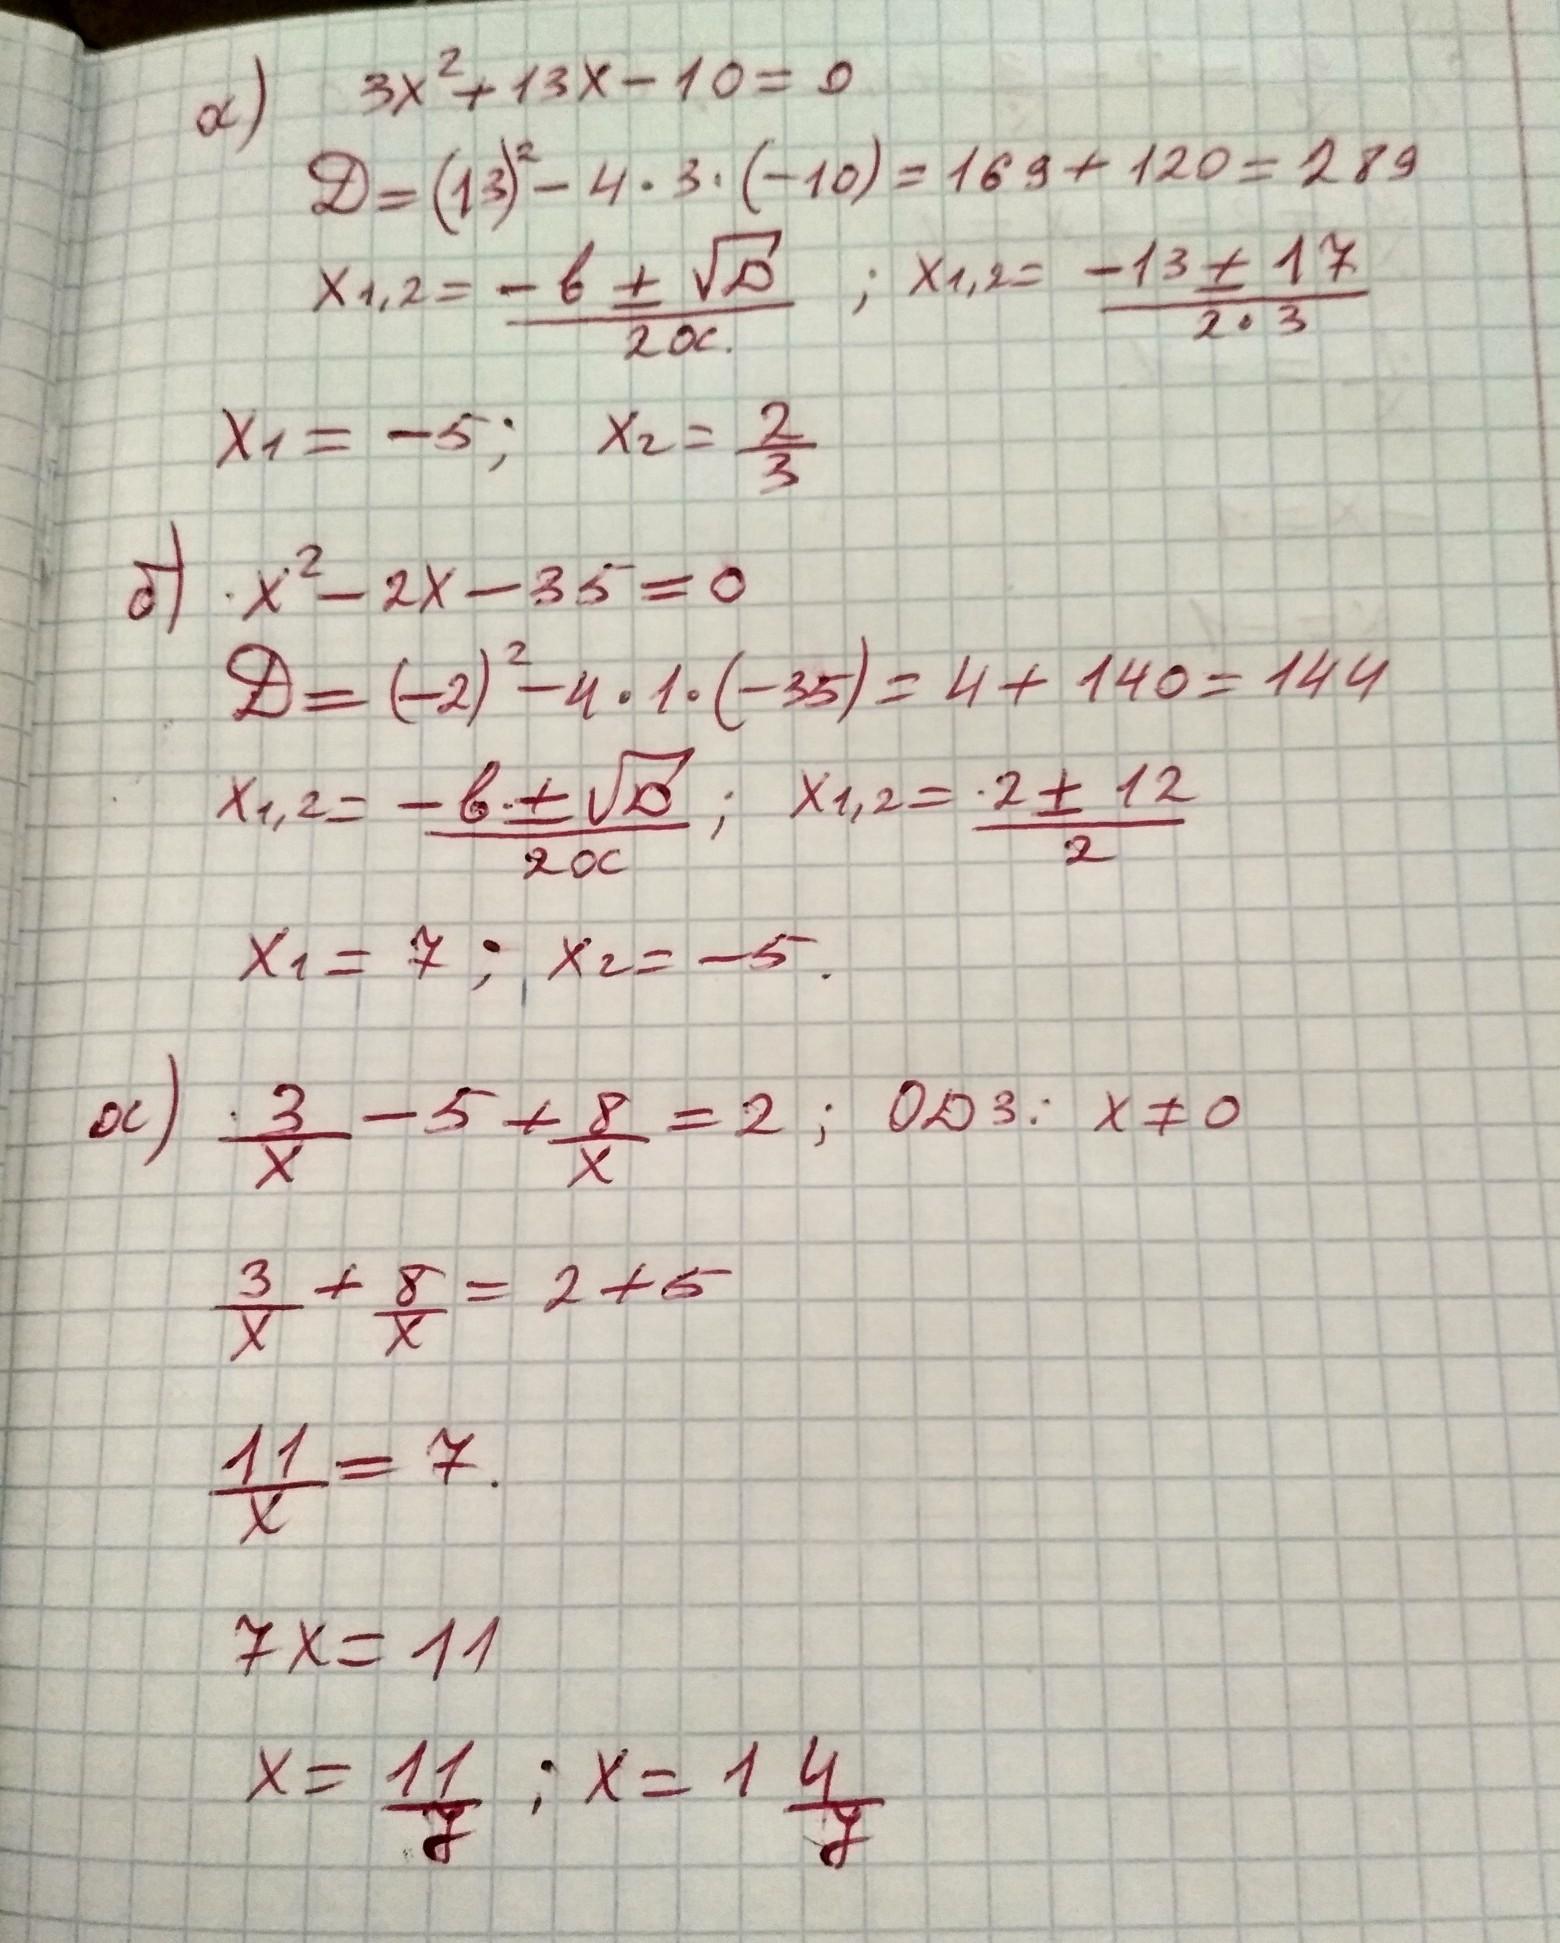 а) 3x² + 13x − 10 = 0
D = (13)² − 4 · 3 · (−10) = 169 + 120 = 289
x₁,₂ = (−b ± √D)/(2a) ; x₁,₂ = (−13 ± 17)/(2·3)
x₁ = −5; x₂ = 2/3
б) x² − 2x − 35 = 0
D = (−2)² − 4 · 1 · (−35) = 4 + 140 = 144
x₁,₂ = (−b ± √D)/(2a) ; x₁,₂ = (2 ± 12)/2
x₁ = 7 ; x₂ = −5.
а) 3/x − 5 + 8/x = 2 ; ОДЗ: x ≠ 0
3/x + 8/x = 2 + 5
11/x = 7.
7x = 11
x = 11/7 ; x = 1 4/7